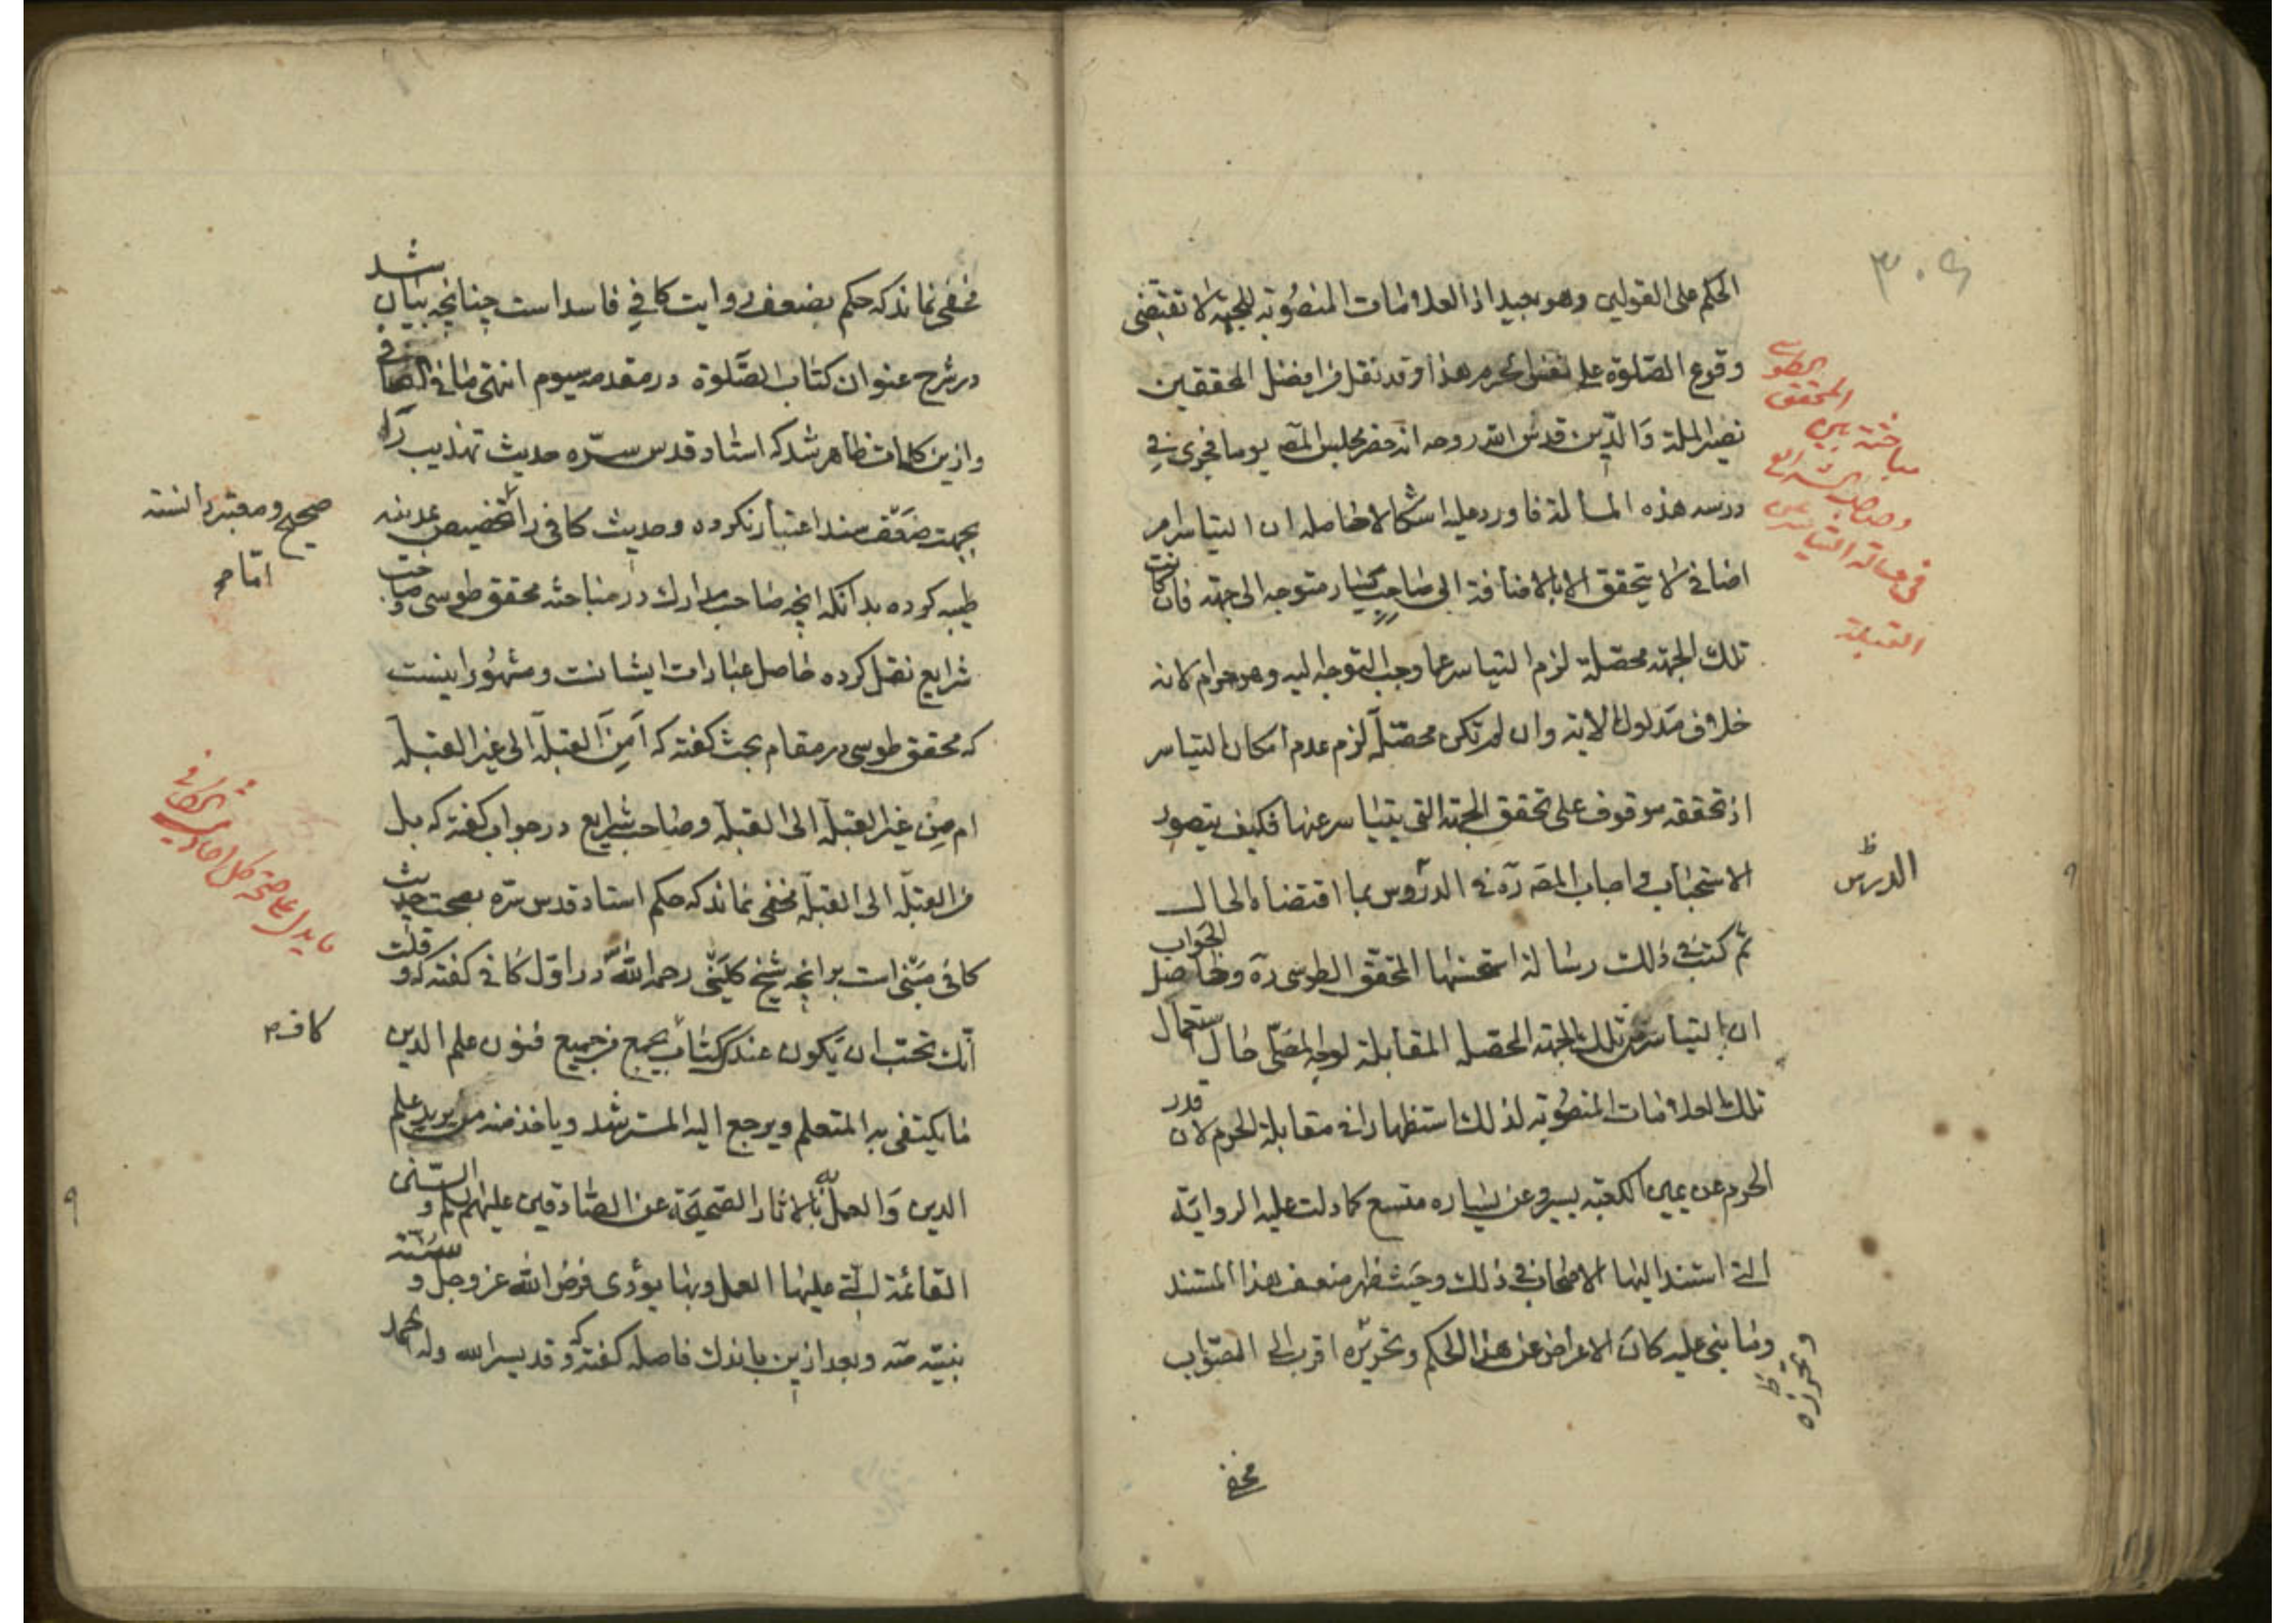 ۳۰۶
الحكم على القولين وهو بعيد اذ العلامات المنصوبة للجهة لا تقتضى
وقوع الصلوة على نفس الحرم هذا وقد نقل ان افضل المحققين
نصير الملة والدين قدس الله روحه انه حضر مجلس المصر يوما فجرى في
درسه هذه المسألة فاورد عليه اشكالا حاصله ان التياسر امر
اضافى لا يتحقق الا بالاضافة الى صاحب يسار متوجه الى جهة فان كانت
تلك الجهة محصلة لزم التياسر عما وجب التوجه اليه وهو حرام لانه
خلاف مدلول الآية وان لم تكن محصلة لزم عدم امكان التياسر
اذ تحققه موقوف على تحقق الجهة التى يتياسر عنها فكيف يتصور
الاستحباب فاجاب المصر ره فى الدروس بما اقتضاه الحال
ثم كتب فى ذلك رسالة استحسنها المحقق الطوسى ره وحاصل الجواب
ان التياسر عن تلك الجهة المحصلة المقابلة لوجه المصلى حال استعمال
تلك العلامات المنصوبة لذلك استظهارا فى مقابلة الحرم لان قدر
الحرم عن يمين الكعبة يسير وعن يساره متسع كما دلت عليه الرواية
التى استند اليها الاصحاب فى ذلك وحيث ظهر ضعف هذا المستند
وما بنى عليه كان الاعراض عن هذا الحكم وتحريره اقرب الى الصواب
مخفى
مباحثة بين
المحقق
الطوسى
وصاحب الشرائع
فى مسألة التياسر عن
القبلة
الدرس ظ
وتحرزه ظ
مخفى نماند كه حكم بضعف روايت كافى فاسد است چنانچه بيان شد
در شرح عنوان كتاب الصلوة در مقدمه سيوم انتهى ما فى الصافى
وازين كلمات ظاهر شد كه استاد قدس سره حديث تهذيب را
بجهت ضعف سند اعتبار نكرده وحديث كافى را تخصيص بمدينه
طيبه كرده بدانكه آنچه صاحب مدارك در مباحثه محقق طوسى وصاحب
شرايع نقل كرده حاصل عبارات ايشانست ومشهور اينست
كه محقق طوسى در مقام بحث گفته كه أمن القبلة الى غير القبلة
ام من غير القبلة الى القبلة وصاحب شرايع در جواب گفته كه بل
من القبلة الى القبلة مخفى نماند كه حكم استاد قدس سره بصحت حديث
كافى مبنى است بر آنچه شيخ كلينى رحمه الله در اول كافى گفته كه وقلت
انك تحب ان يكون عندك كتاب يجمع من جميع فنون علم الدين
ما يكتفى به المتعلم ويرجع اليه المسترشد وياخذ منه من يريد علم
الدين والعمل به بالاثار الصحيحة عن الصادقين عليهم السلم والسنن
القائمة التى عليها العمل وبها يؤدى فرض الله عز وجل وسنة
نبيه صه وبعد ازين باندك فاصله گفته كه وقد يسر الله وله الحمد
صحيح ومعتبر دانسته
اما
ما يدل على صحة كل احاديث الكافى
كاف